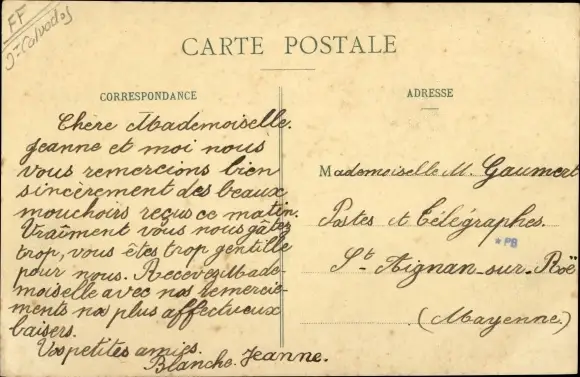 FF
CARTE POSTALE
CORRESPONDANCE
Chère Mademoiselle.
Jeanne et moi nous
vous remercions bien
sincèrement des beaux
mouchoirs reçus ce matin.
Vraiment vous nous gâtez
trop, vous êtes trop gentille
pour nous. Recevez Made-
moiselle avec nos remercie-
ments nos plus affectueux
baisers.
Vos petites amies.
Blanche. Jeanne.
ADRESSE
Mademoiselle M. Gaumert
Postes et Télégraphes.
*PB
St Aignan-sur-Roë
(Mayenne.)